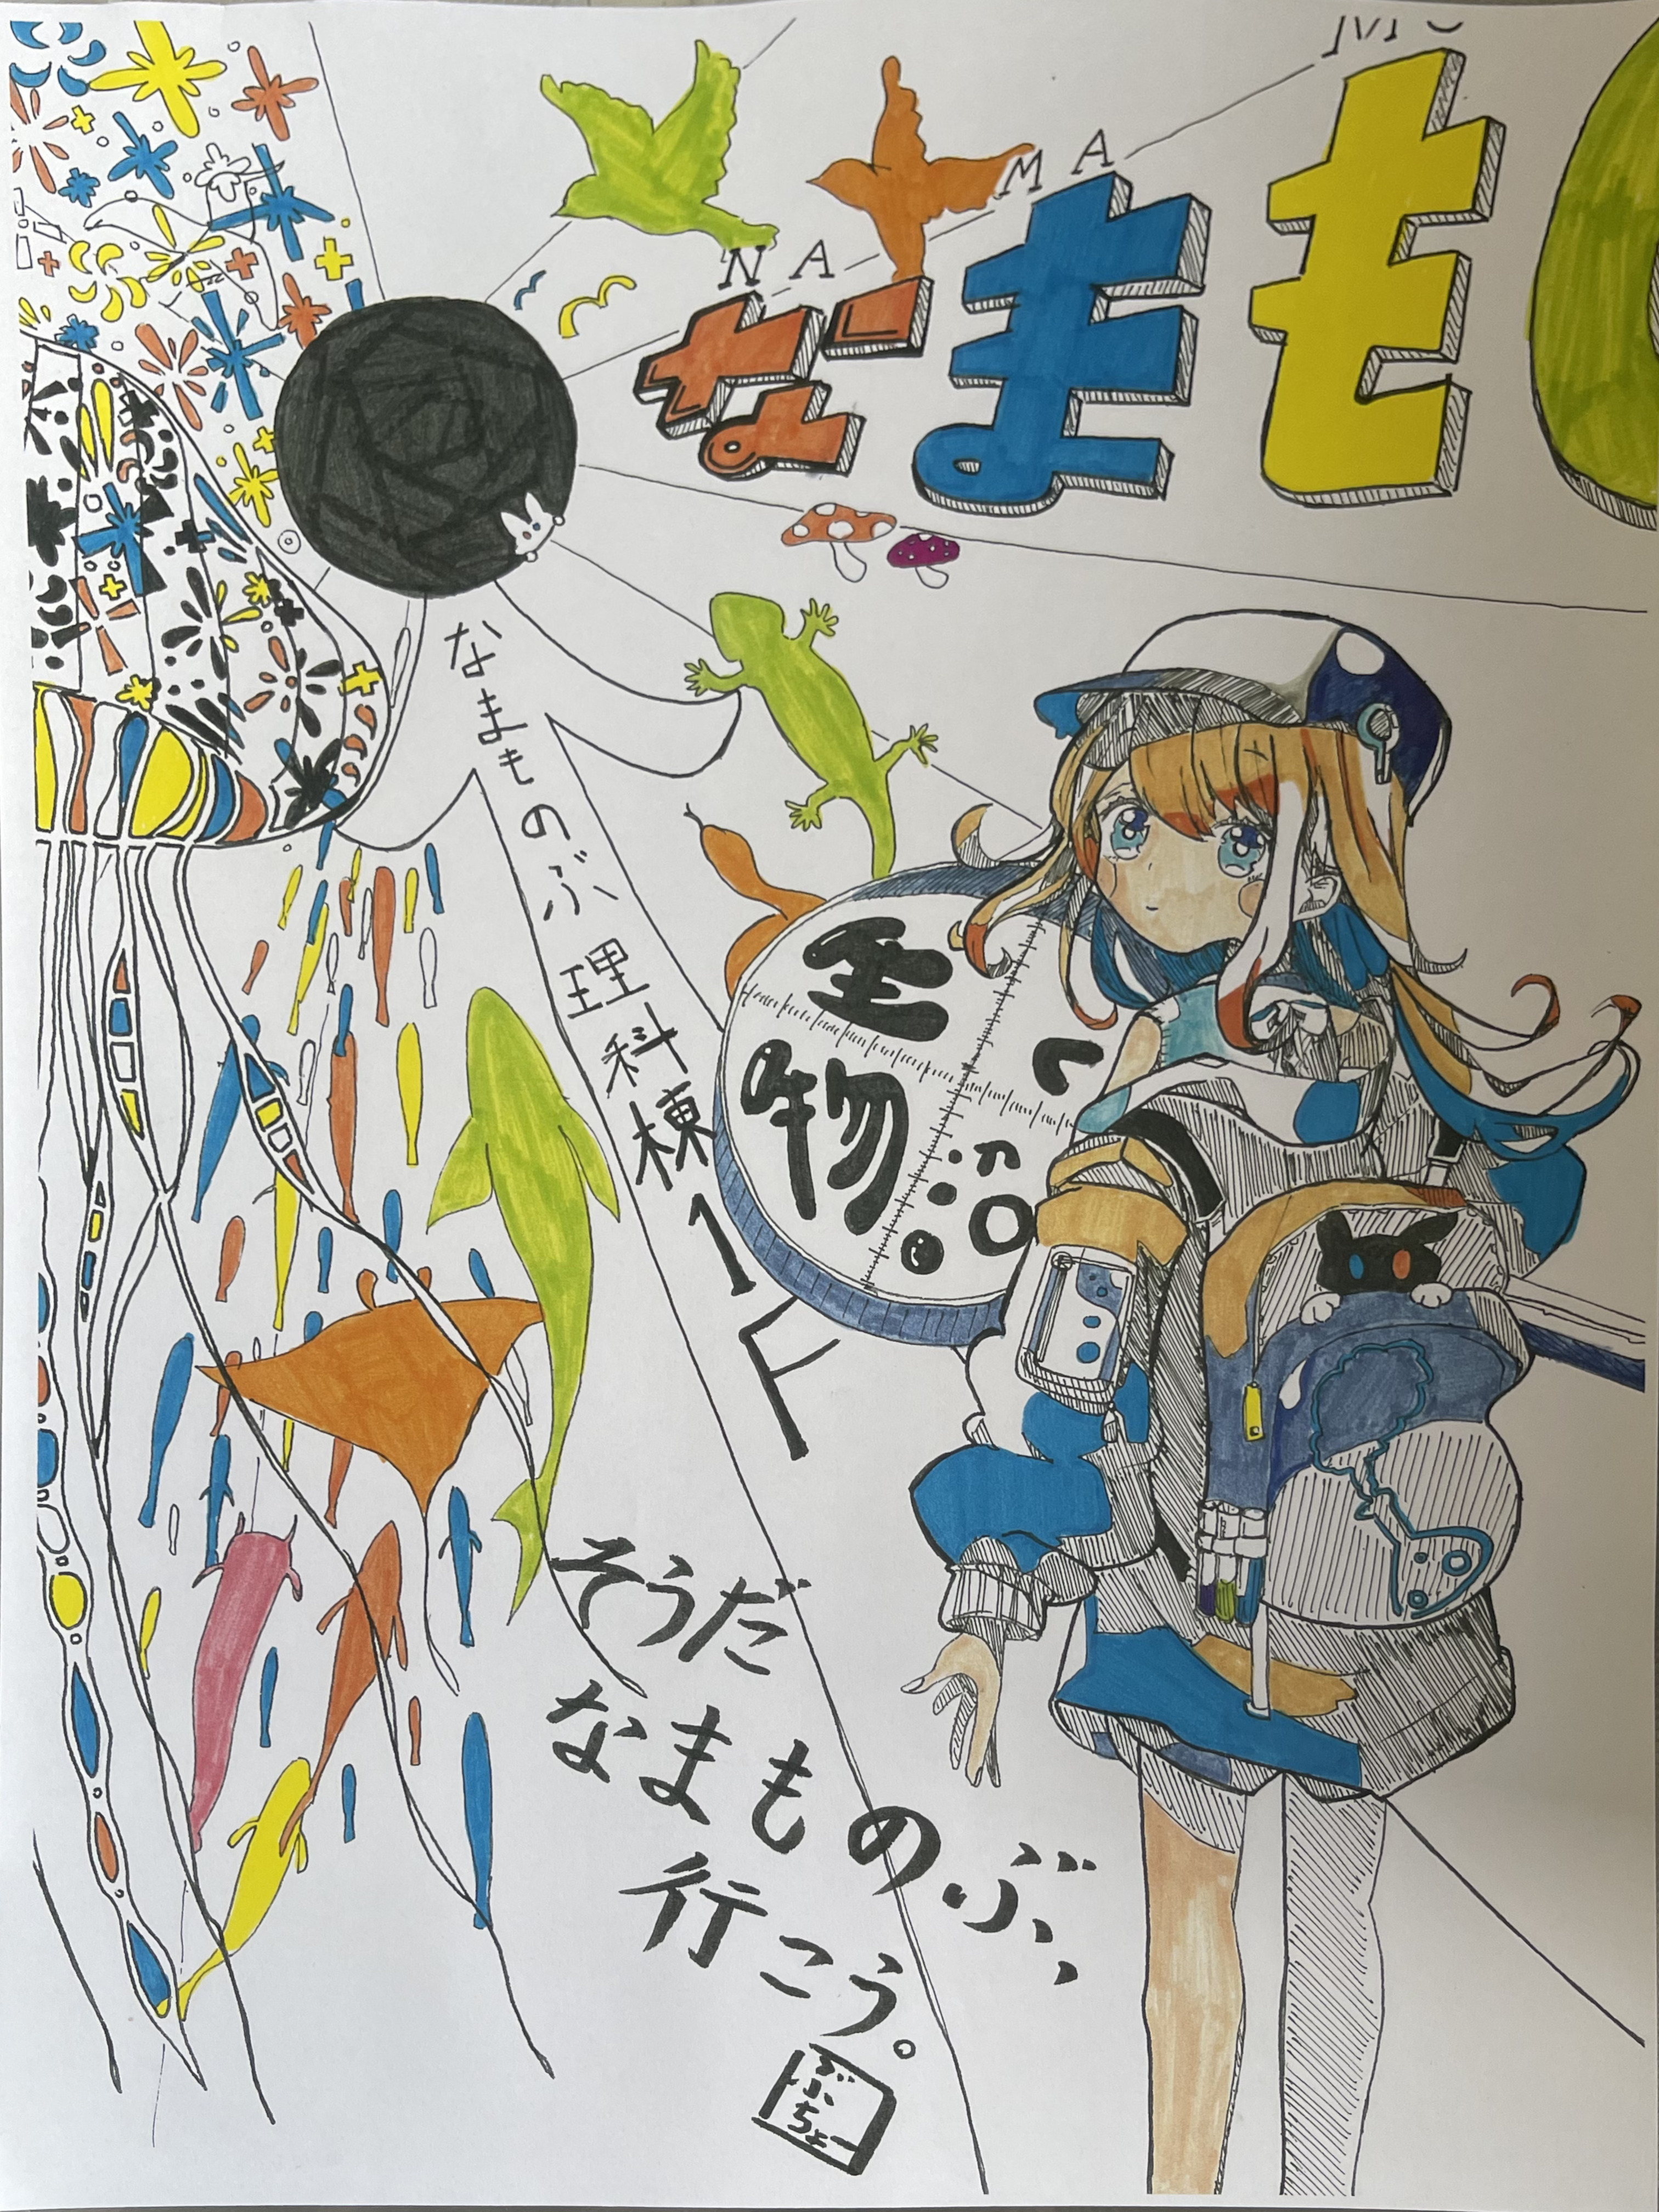 NA MA MO
なまもの
なまものぶ 理科棟1F
生物
そうだ
なまものぶ、
行こう。
ぶちょー